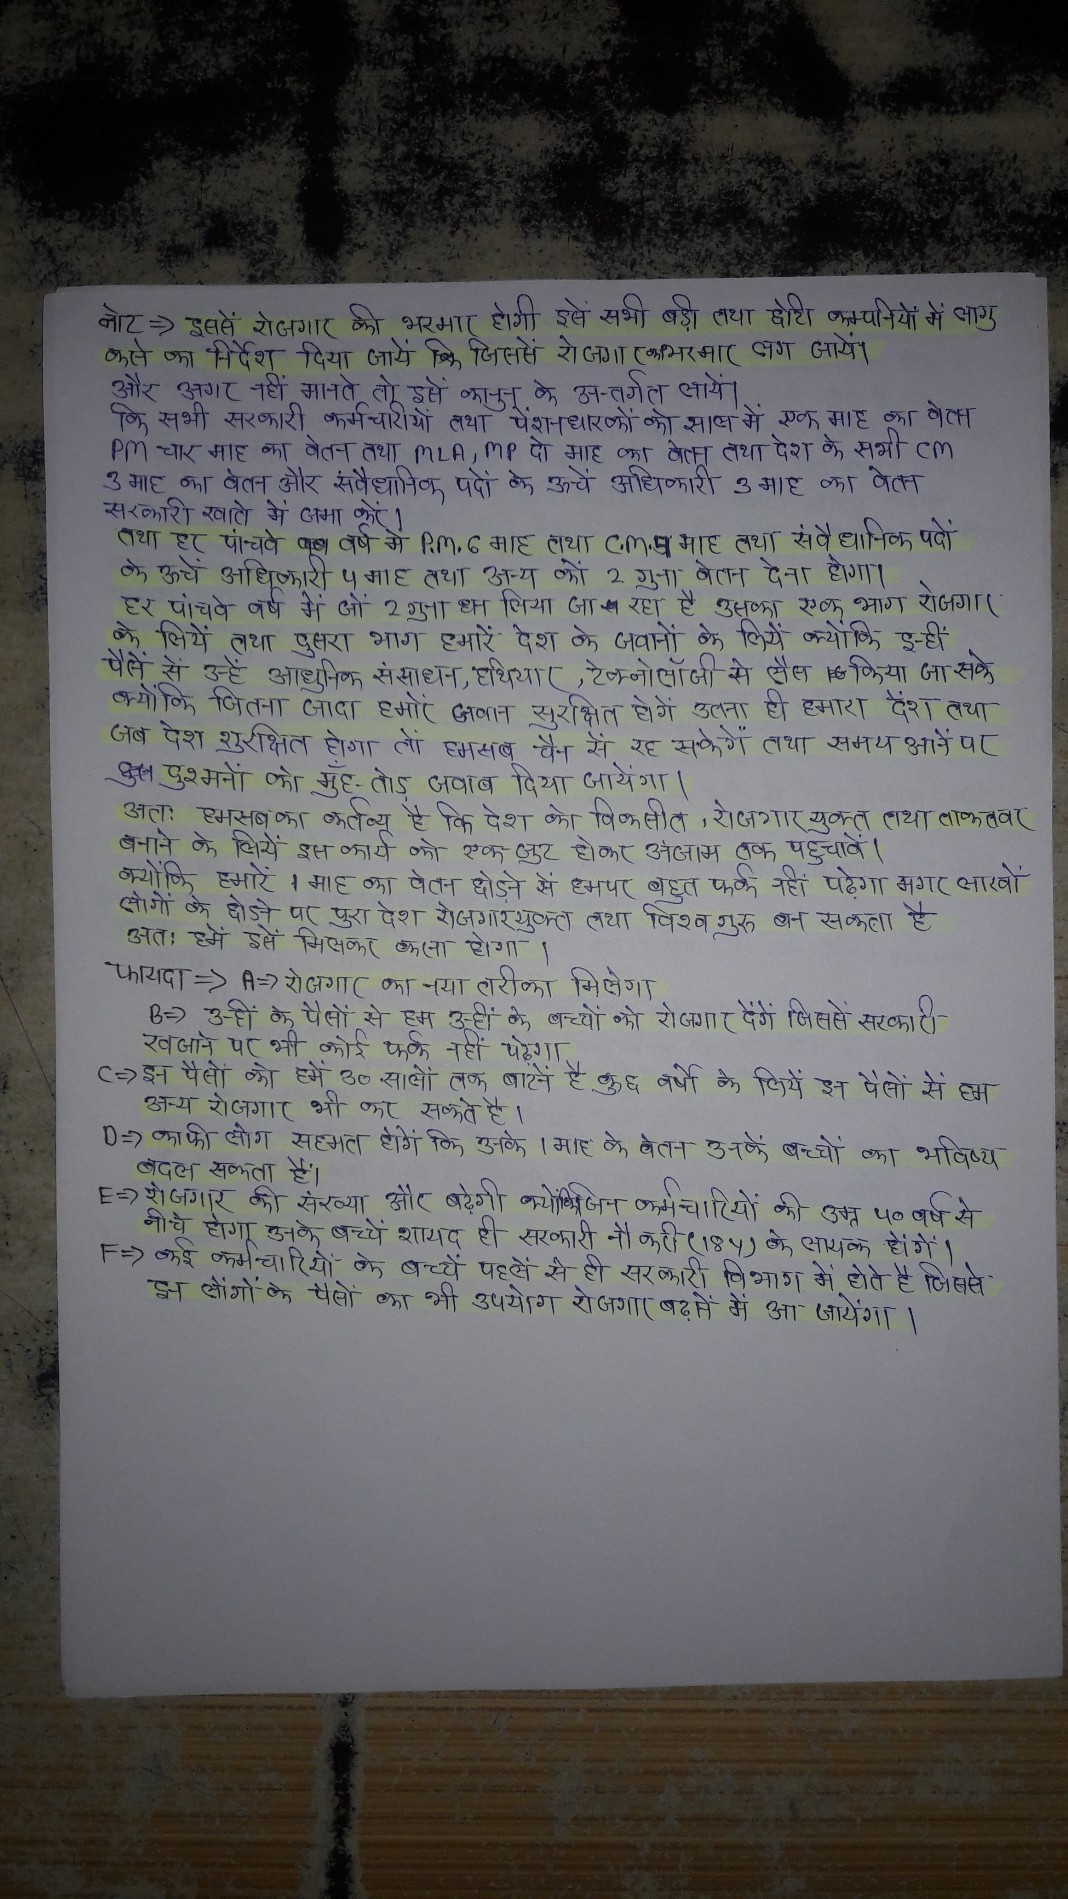 नोट => इससें रोजगार की भरमार होगी इसें सभी बड़ी तथा छोटी कम्पनियों में लागु
करने का निर्देश दिया जायें कि जिससें रोजगार का भरमार लग जायें।
और अगर नहीं मानते तो इसें कानुन के अन्तर्गत लायें।
कि सभी सरकारी कर्मचारीयों तथा पेंशनधारकों को साल में एक माह का वेतन
PM चार माह का वेतन तथा MLA, MP दो माह का वेतन तथा देश के सभी CM
3 माह का वेतन और संवैधानिक पदों के ऊचें अधिकारी 3 माह का वेतन
सरकारी खाते में जमा करें।
तथा हर पांचवे वर्ष में P.M. 6 माह तथा C.M. 4 माह तथा संवैधानिक पदों
के ऊचें अधिकारी 4 माह तथा अन्य कों 2 गुना वेतन देना होगा।
हर पांचवे वर्ष में जों 2 गुना धन लिया जा रहा है उसका एक भाग रोजगार
के लियें तथा दुसरा भाग हमारें देश के जवानों के लियें क्योंकि इन्हीं
पैसें सें उन्हें आधुनिक संसाधन, हथियार, टेक्नोलॉजी से लैस किया जा सके
क्योंकि जितना जादा हमारें जवान सुरक्षित होगें उतना ही हमारा देंश तथा
जब देश शुरक्षित होगा तों हमसब चैन सें रह सकेगें तथा समय आनें पर
दुश्मनों को मुँह-तोड़ जवाब दिया जायेंगा।
अतः हमसब का कर्तव्य है कि देश को विकसीत, रोजगार युक्त तथा ताकतवर
बनाने के लियें इस कार्य को एक जुट होकर अंजाम तक पहुचावें।
क्योंकि हमारें 1 माह का वेतन छोड़ने सें हमपर बहुत फर्क नहीं पढ़ेगा मगर लाखों
लोगों के छोड़ने पर पुरा देश रोजगारयुक्त तथा विश्व गुरु बन सकता है
अतः हमें इसें मिलकर करना होगा।
फायदा => A=> रोजगार का नया तरीका मिलेगा
B=> उन्हीं के पैसों से हम उन्हीं के बच्चों को रोजगार देंगें जिससें सरकारी
खजाने पर भी कोई फर्क नहीं पढ़ेगा
C=> इन पैसों को हमें 30 सालों तक बांटनें है कुछ वर्षों के लियें इन पैसों सें हम
अन्य रोजगार भी कर सकते है।
D=> काफी लोग सहमत होगें कि उनके 1 माह के वेतन उनकें बच्चों का भविष्य
बदल सकता है।
E=> रोजगार की संख्या और बढ़ेगी क्योंकि जिन कर्मचारियों की उम्र 40 वर्ष से
नीचे होगा उनके बच्चें शायद ही सरकारी नौकरी (18 y) के लायक होंगें।
F=> कई कर्मचारियों के बच्चें पहलें से ही सरकारी विभाग में होते है जिससे
इन लोंगों के पैसों का भी उपयोग रोजगार बढ़ानें में आ जायेंगा।